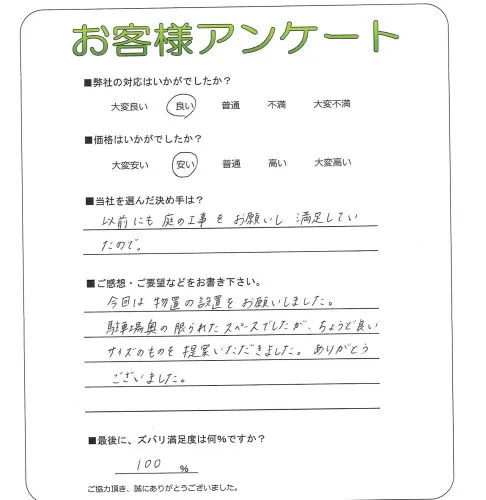 お客様アンケート
■弊社の対応はいかがでしたか？
大変良い 良い 普通 不満 大変不満
■価格はいかがでしたか？
大変安い 安い 普通 高い 大変高い
■当社を選んだ決め手は？
以前にも 庭の工事を お願いし 満足してい
たので。
■ご感想・ご要望などをお書き下さい。
今回は 物置の設置をお願いしました。
駐車場奥の限られたスペースでしたが、ちょうど良い
サイズのものを提案いただきました。ありがとう
ございました。
■最後に、ズバリ満足度は何%ですか？
100 %
ご協力頂き、誠にありがとうございました。